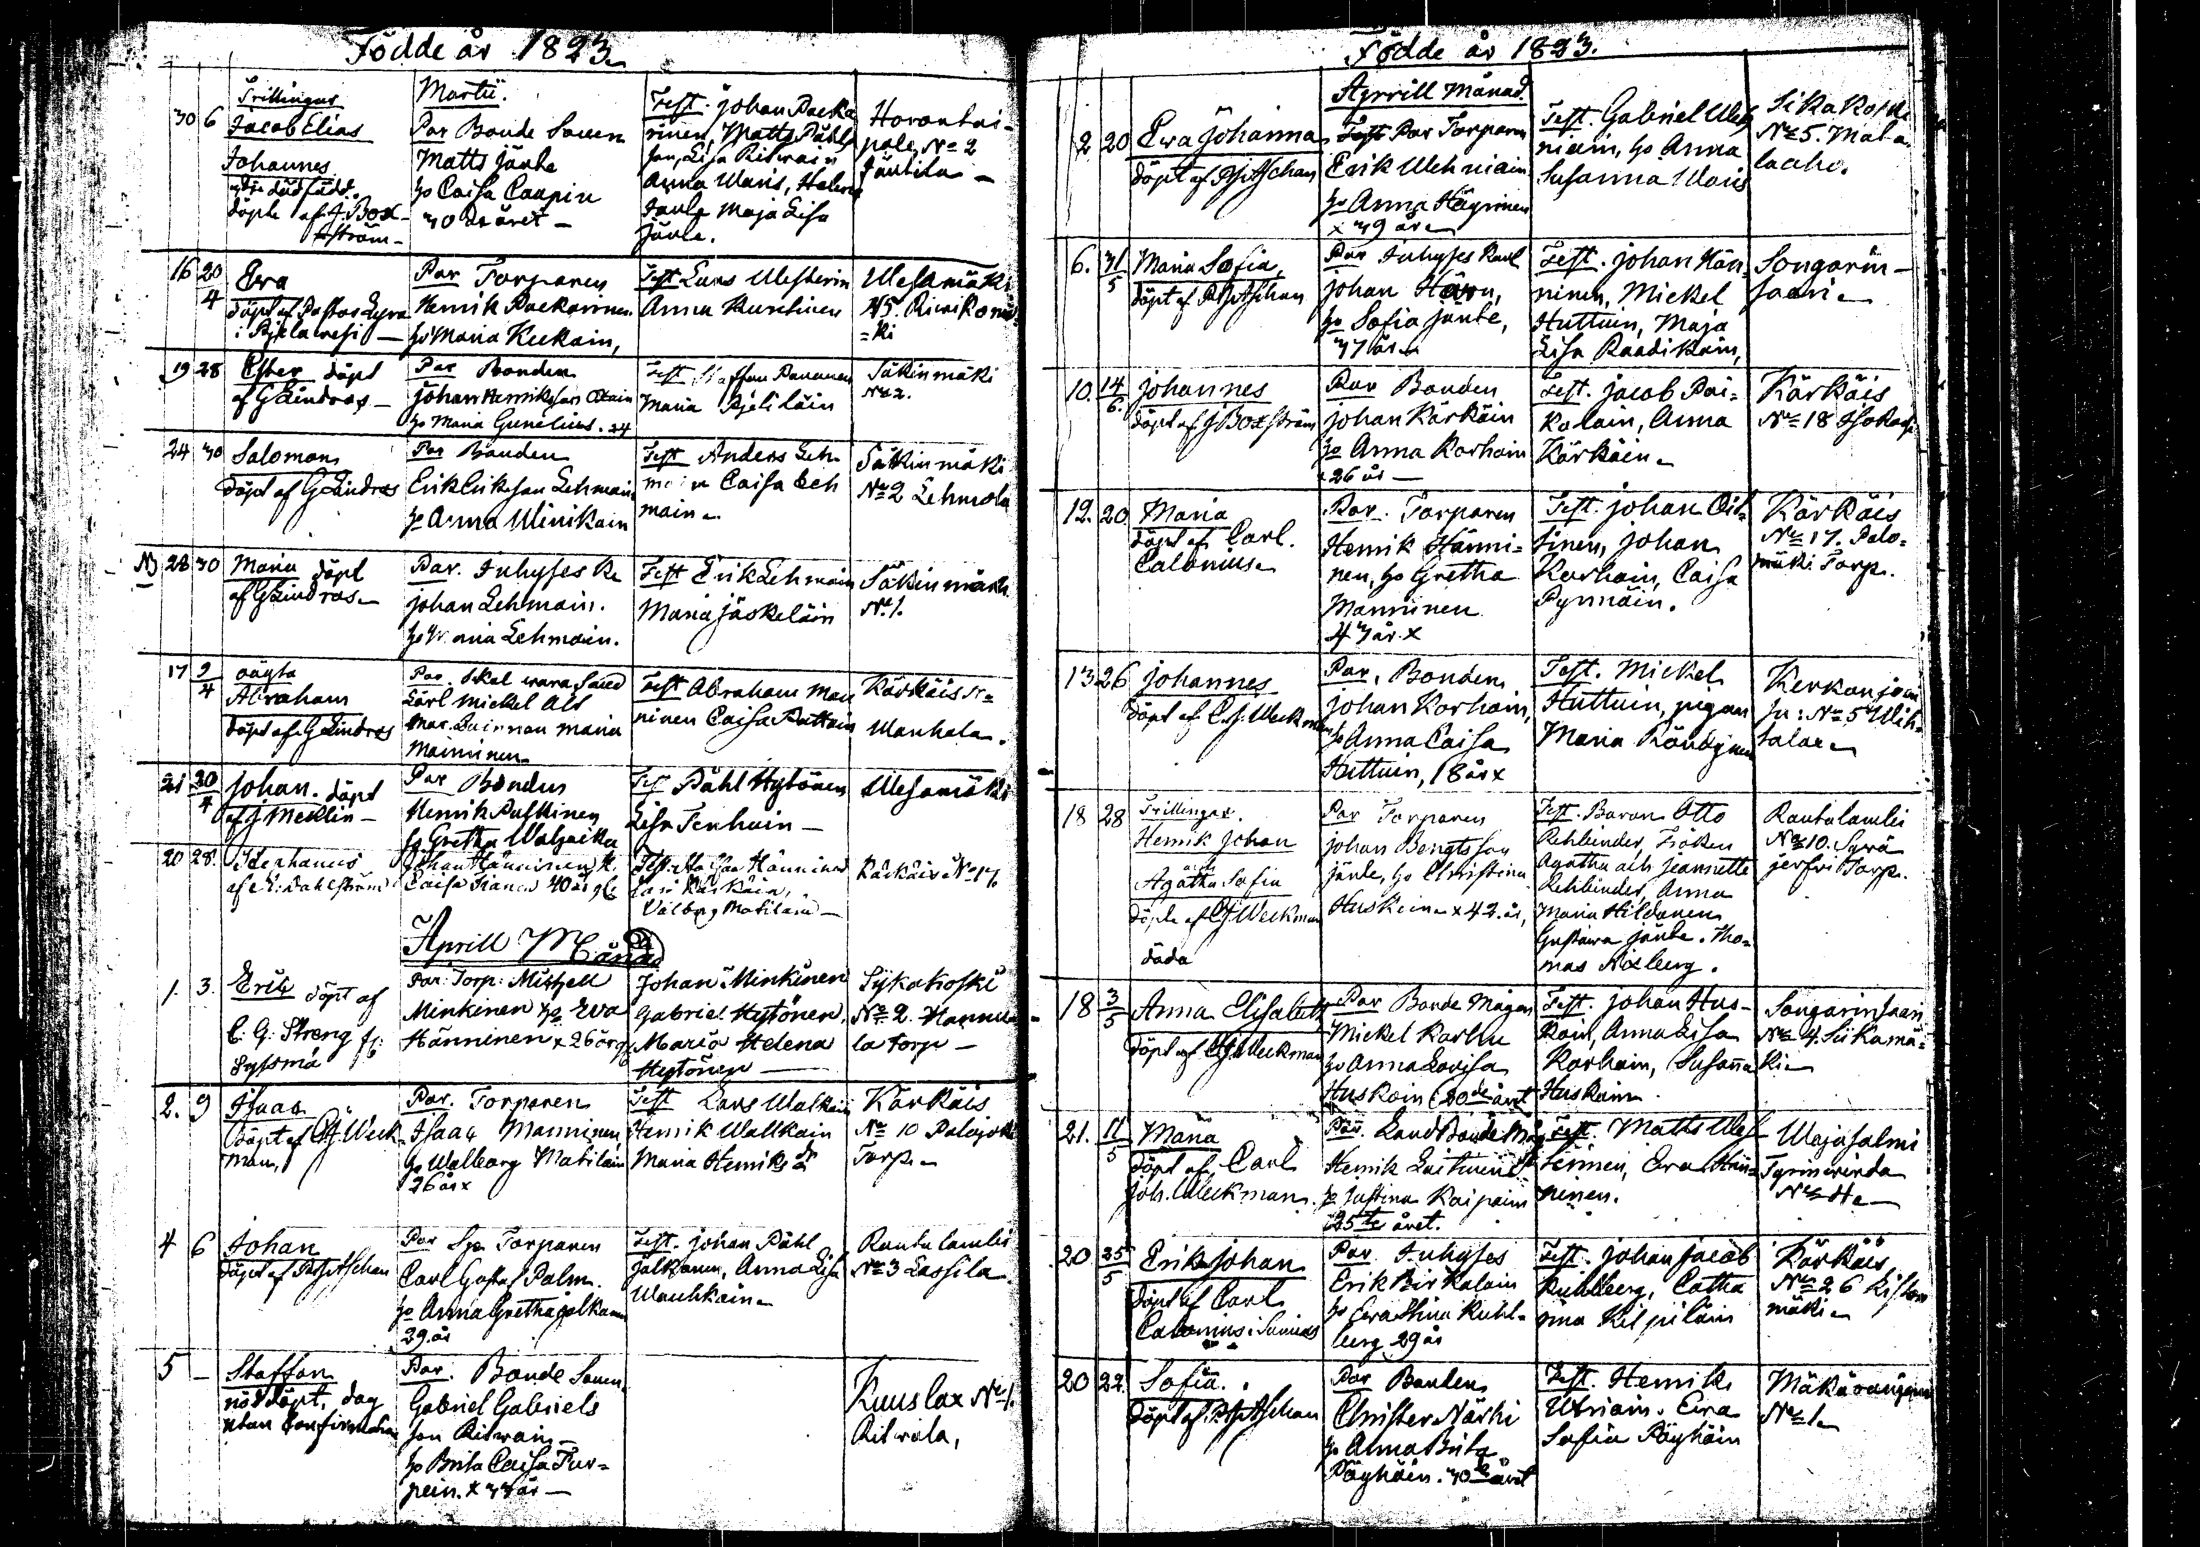 Födde år 1823.
Martii.
30 6 Trillingar
Jacob Elias
Johannes
döpte af J. Box-
ström -
Par Bonde Sonen
Matts Jänte
ho Caisa Caupin
30 de året -
Test. Johan Paeka
rinen, Matts Påhls
son, Lisa Ritwain
Anna Waris, Helena
Jänte Maja Lisa
Jänte.
Horontai-
pale No 2
Jäntila -
16 20/4 Eva
döpt af Pastor Lyra
i Pjelawesi -
Par Torparen
Henrik Paekarinen
ho Maria Keekain,
Test Lars Westerin
Anna Kurtinen
Wesamäki
N5. Kiwikomä
=ki
19 28 Ester döpt
af G Lindros -
Par Bonden
Johan Henriksson
ho Maria Gunelius. 24
Test Staffan Pananen
Maria Pjeliläin
Säkinmäki
No 2.
24 30 Salomon
döpt af G Lindros
Par Bonden
Erik Eriksson Lehmain
ho Anna Minikain
Test Anders Leh
main Caisa Leh
main -
Säkinmäki
No 2 Lehmola
28 30 Maria döpt
af G Lindros -
Par. Inhyses Ka
Johan Lehmain.
ho Maria Lehmain.
Test Erik Lehmain
Maria Jäskeläin
Säkinmäki
No 1.
17 9/4 oägta
Abraham
döpt af G Lindros
Par. skal wara Sold
Karl Mickel Alt
Mor. Qwinnan Maria
Manninen
Test Abraham Man
ninen Caisa Puttain
Kärkäis No
Manhala.
21 20/4 Johan. döpt
af J Mecklin -
Par Bonden
Henrik Pulkkinen
ho Gretha Waljacka
Test Påhl Hytönen
Lisa Tenhuin -
Wesamäki
20 28. Johannes
af C. E. Dahlström
Johan Hänninen
Caisa Tianen 40 år gl.
Test: Staffan Hänninen
Lars Kärkäin,
Valborg Matilain -
Kärkäis No 17.
Aprill Månad
1. 3. Erik döpt af
C. G. Streng fr:
Sysmä
Par: Torp: Mickell
Minkinen ho Eva
Hänninen x 26 år gl.
Johan Minkinen
Gabriel Hytönen,
Maria Helena
Hytönen -
Sijkakoski
No 2. Hannu
la torp -
2. 9 Isaac
döpt af C J Weck-
man,
Par. Torparen
Isaac Manninen
ho Walborg Matilain
26 år x
Test Lars Walkain
Henrik Walkain
Maria Henriksdr
Kärkäis
No 10 Palojoki
Torp -
4 6 Johan
döpt af P Pitschan
Par Sp. Torparen
Carl Gustaf Palm.
ho Anna Gretha Jalkanen
29 år
Test. Johan Påhl
Jalkanen, Anna Lisa
Wauhkain -
Rautalambi
No 3 Lassila.
5 - Staffan
nöddöpt. dog
utan Confirmation
Par. Bonde Sonen
Gabriel Gabriels
son Ritwain -
ho Brita Caisa Tur=
pein. x 33 år -
Kuuslax No 1.
Ritwala,
Födde år 1823.
Aprill Månad.
2 20 Ewa Johanna
döpt af Pitschan
Par Torparen
Erik Wehniain
ho Anna Häyrinen
x 39 år -
Test. Gabriel Weh
niain, ho Anna
Susanna Waris
Sikakoski
No 5. Mata
laaho.
6. 31/5 Maria Sofia,
döpt af P Pitschan
Par Inhyses Karl
Johan Hän,
ho Sofia Jänte,
37 år -
Test. Johan Hän
ninen, Mickel
Huttuin, Maja
Lisa Raadikain,
Songarin-
saari -
10. 14/6. Johannes
döpt af J Boxström
Par Bonden
Johan Kärkäin
ho Anna Korhoin
x 26 år -
Test. Jacob Pai=
kalain, Anna
Kärkäin -
Kärkäis
No 18
12. 20 Maria
döpt af Carl.
Calonius -
Par. Torparen
Henrik Hänni=
nen, ho Gretha
Manninen
43 år. x
Test. Johan Oit=
tinen, Johan
Korhoin, Caisa
Pynnöin.
Kärkäis
No 17. Palo=
mäki Torp.
13 26 Johannes
döpt af C. J. Weckman
Par. Bonden
Johan Korhoin,
ho Anna Caisa
Huttuin, 18 år x
Test. Mickel
Huttuin, pigan
Maria
Kerkonjoen
su: No 5 Wih
talae -
18 28 Trillingar.
Henrik Johan
och
Agatha Sofia
döpte af C J Weckman
döda
Par Torparen
Johan Bengtsson
Jänte, ho Christina
Huskoin - x 42 år,
Test. Baron Otto
Rehbinder, Fröken
Agatha och Jeannette
Rehbinder, Anna
Maria Hildonen
Gustawa Jänte. Tho=
mas Nixberg.
Rautalambi
No 10. Syvä
jerfwi Torp.
18 3/5 Anna Elisabeth
döpt af C J Weckman
Par Bonde Mågen
Mickel Karhu
ho Anna Lovisa
Huskoin (20 de året
Test. Johan Hus-
koin, Anna Lisa
Korhoin, Susanna
Huskoin
Songarinsaari
No 4. Siikamä=
ki -
21. 11/5 Maria
döpt af Carl
Joh. Weckman.
Par. Land Bonde
Henrik Laitinen
ho Justina Kaipain
25 te året.
Test. Matts Wes
terinen, Eva Hän=
ninen.
Wejasalmi
Tynninranta
20 25/5 Erik Johan
döpt af Carl
Calonius i Sumias
Par. Inhyses
Erik Pirkalain
ho Eva Stina Kuhl=
berg 29 år
Test. Johan Jacob
Kuhlberg, Catha
rina Kilpiläin
Kärkäis
No 26
mäki -
20 22. Sofia.
döpt af P Pitschan
Par Bonden
Christer Närhi
ho Anna Brita
Pöyhöin. 30 de året
Test. Henrik
Utriain. Eva
Sofia Pöyhöin
No 1